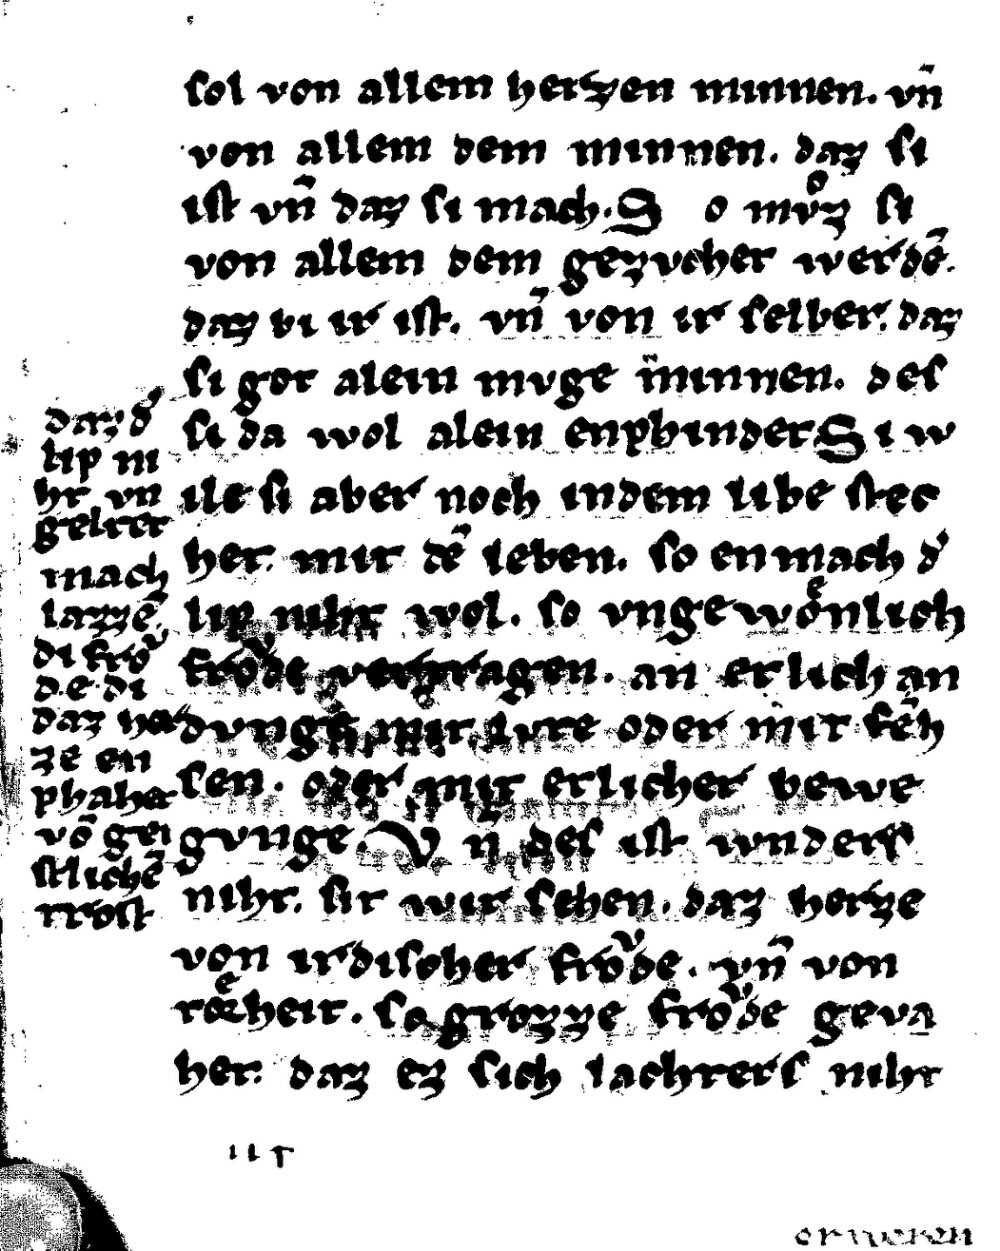 sol von allem herzen minnen. vn̄
von allem dem minnen. daz si
ist vn̄ daz si mach. S o mvͦz si
von allem dem gezvchet werdē.
daz bi ir ist. vn̄ von ir selber. daz
si got alein mvge minnen. des
si da wol alein enphindet. S i w
ile si aber noch indem libe stec
ket. mit dē leben. so enmach d̕
lip niht wol. so vngewoͤnlich
froͮde vertragen. an etlich an
dvnge mit ivre oder mit sēh
sen. oder mit etlicher bewe
gvnge. V n̄ des ist wnders
niht. sit wir sehen. daz herze
von irdischer froͮde. vn̄ von
tœͤrheit. so grozze froͮde geva
het. daz ez sich lachters niht
daz d̕
lip ni
ht vn
geltet
mach
lazzē.
di froͮ
de di
daz he
ze en
phahet
vō gei
stlichē
trost
erweren